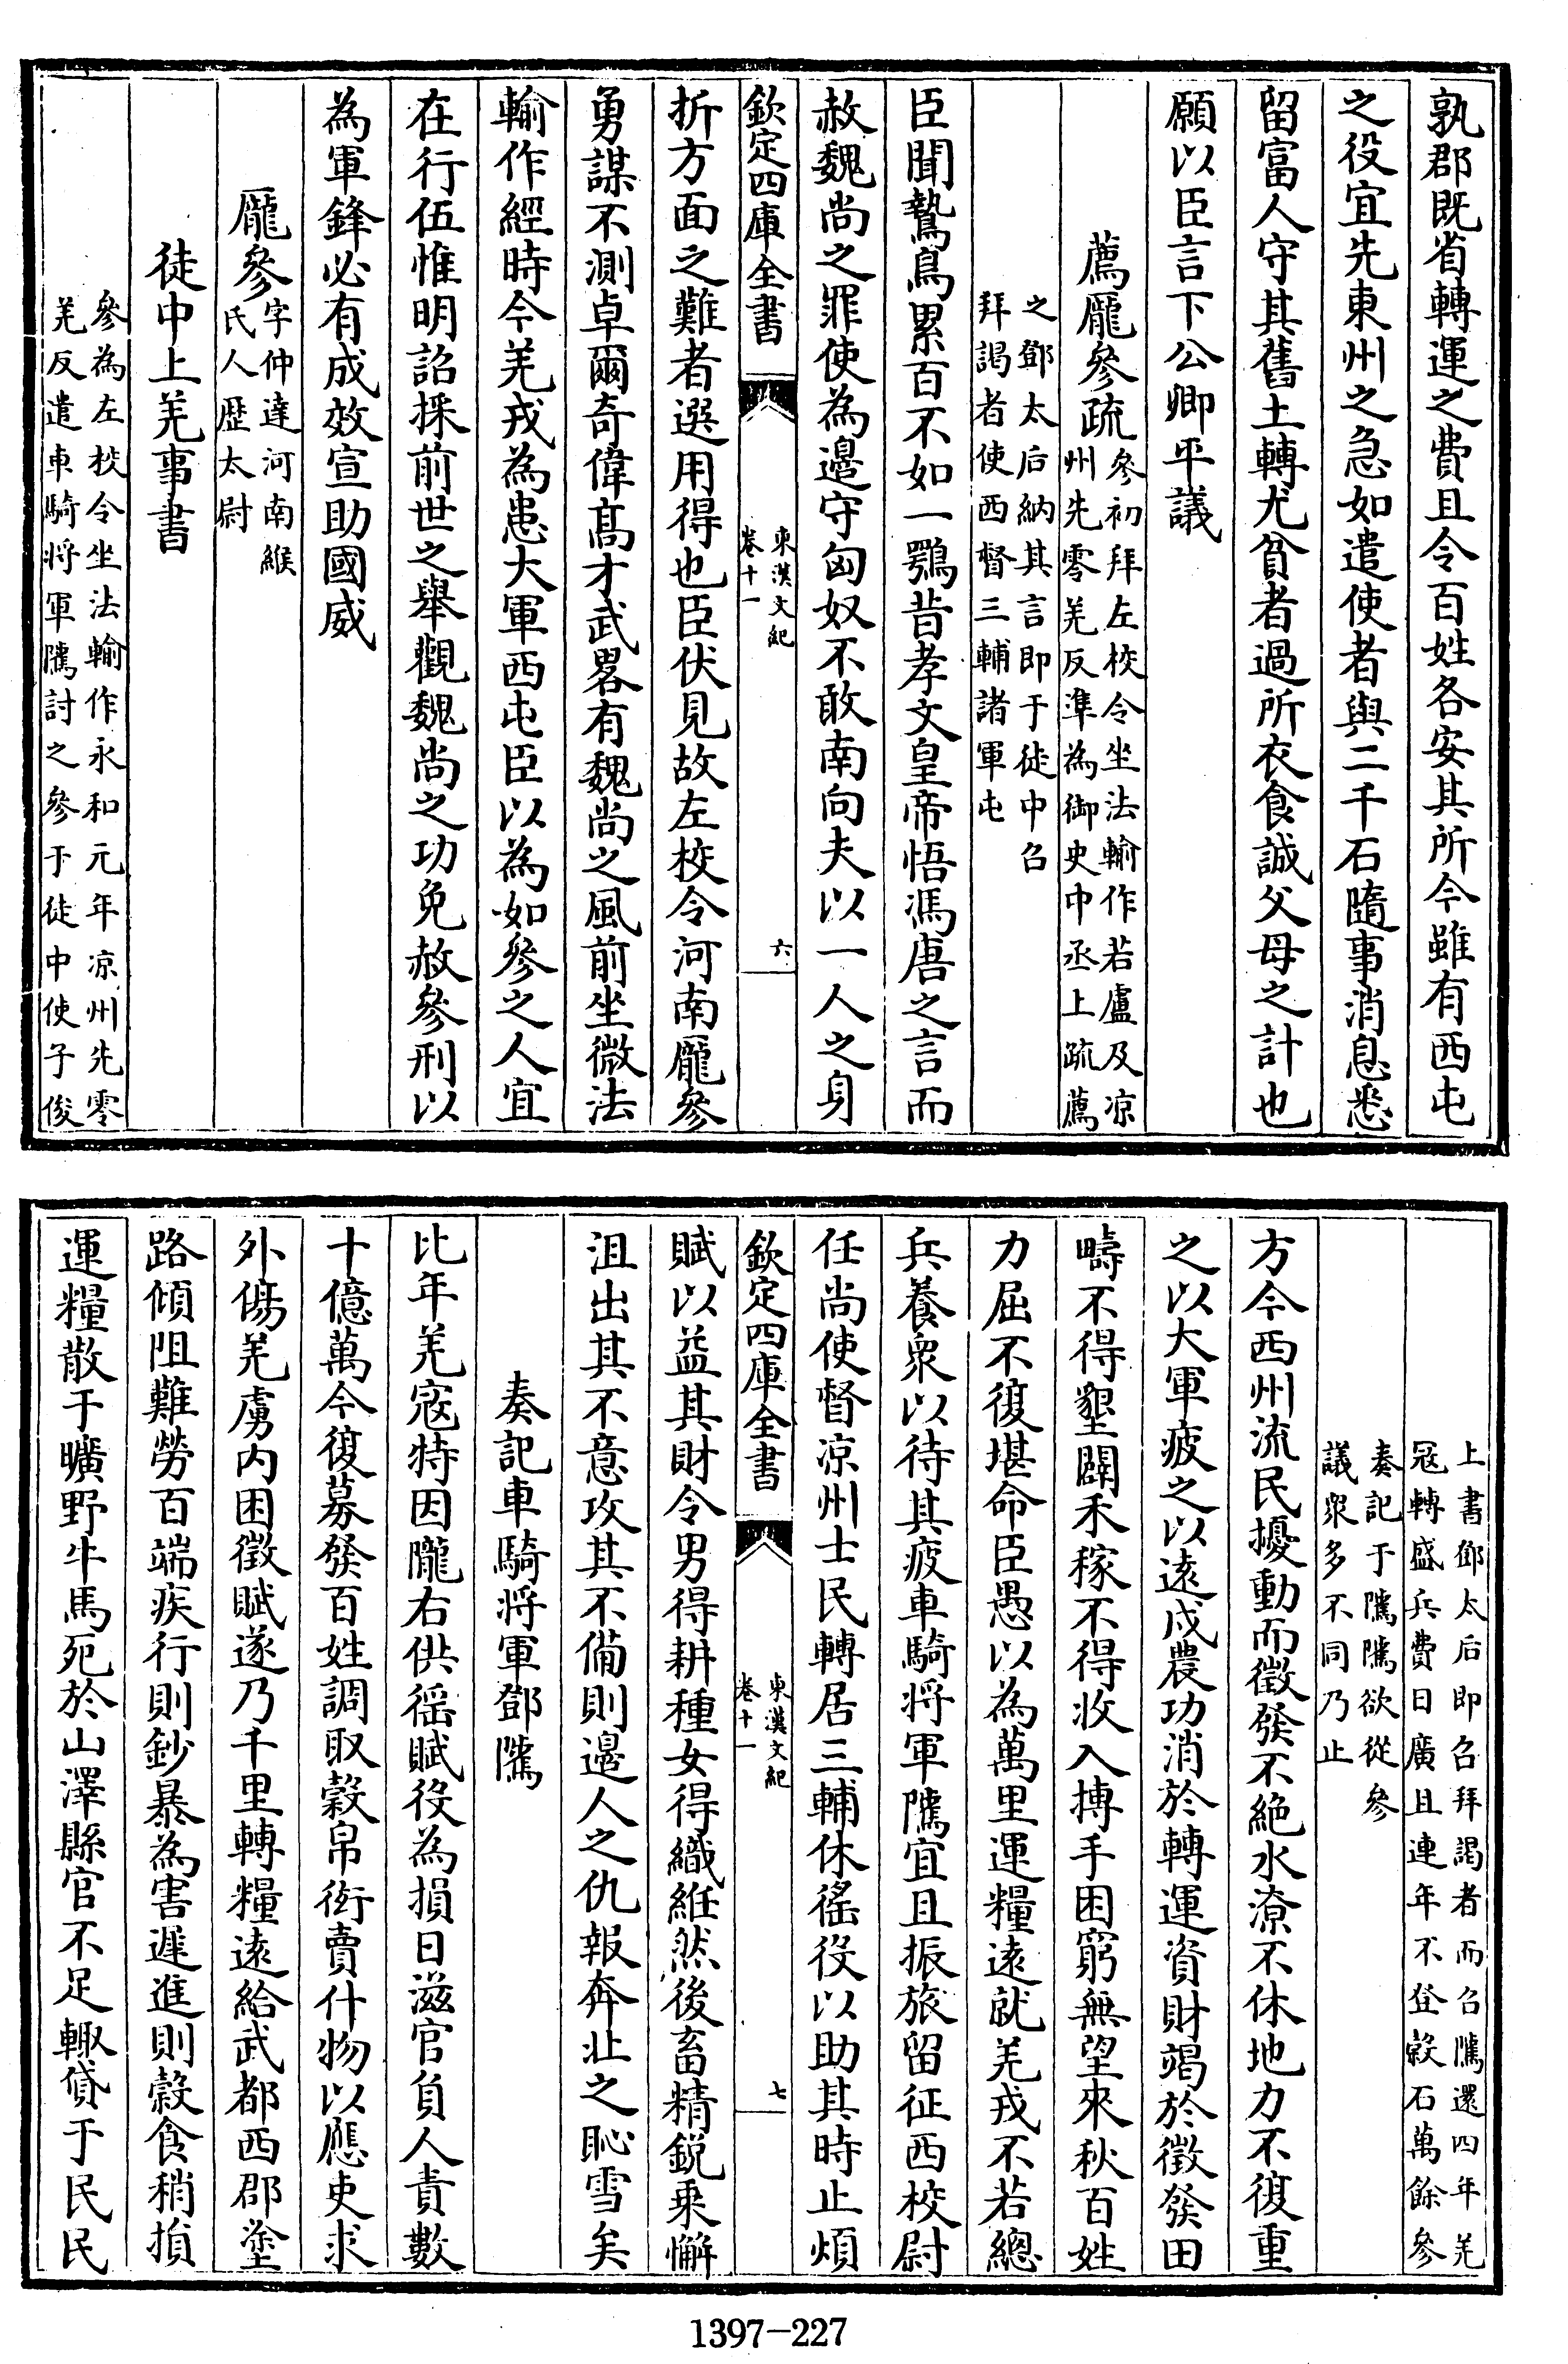 孰郡既省轉運之費且令百姓各安其所今雖有西屯
之役宜先東州之急如遣使者與二千石隨事消息悉
留富人守其舊土轉尤貧者過所衣食誠父母之計也
願以臣言下公卿平議
薦龎參疏參初拜左校令坐法輸作若盧及凉
州先零羌反準為御史中丞上疏薦
之鄧太后納其言即于徒中召
拜謁者使西督三輔諸軍屯
臣聞鷙鳥累百不如一鶚昔孝文皇帝悟馮唐之言而
赦魏尚之罪使為邉守匈奴不敢南向夫以一人之身
欽定四庫全書
東漢文紀
卷十一
六
折方面之難者選用得也臣伏見故左校令河南龎參
勇謀不測卓爾奇偉髙才武畧有魏尚之風前坐微法
輸作經時今羌戎為患大軍西屯臣以為如參之人宜
在行伍惟明詔採前世之舉觀魏尚之功免赦參刑以
為軍鋒必有成效宣助國威
龎參字仲達河南緱
氏人歴太尉
徒中上羌事書
參為左校令坐法輸作永和元年凉州先零
羌反遣車騎将軍隲討之參于徒中使子俊
上書鄧太后即召拜謁者而召隲還四年羌
冦轉盛兵費日廣且連年不登穀石萬餘參
奏記于隲隲欲從參
議衆多不同乃止
方今西州流民擾動而徵發不絶水潦不休地力不復重
之以大軍疲之以逺戍農功消於轉運資財竭於徵發田
疇不得墾闢禾稼不得收入搏手困窮無望來秋百姓
力屈不復堪命臣愚以為萬里運糧逺就羌戎不若總
兵養衆以待其疲車騎将軍隲宜且振旅留征西校尉
任尚使督凉州士民轉居三輔休徭役以助其時止煩
欽定四庫全書
東漢文紀
卷十一
七
賦以益其財令男得耕種女得織絍然後畜精鋭乗懈
沮出其不意攻其不備則邉人之仇報奔北之恥雪矣
奏記車騎將軍鄧隲
比年羌宼特因隴右供徭賦役為損日滋官負人責數
十億萬今復募發百姓調取穀帛衒賣什物以應吏求
外傷羌虜内困徵賦遂乃千里轉糧逺給武都西郡塗
路傾阻難勞百端疾行則鈔暴為害遲進則穀食稍損
運糧散于曠野牛馬死於山澤縣官不足輙貸于民民
1397-227